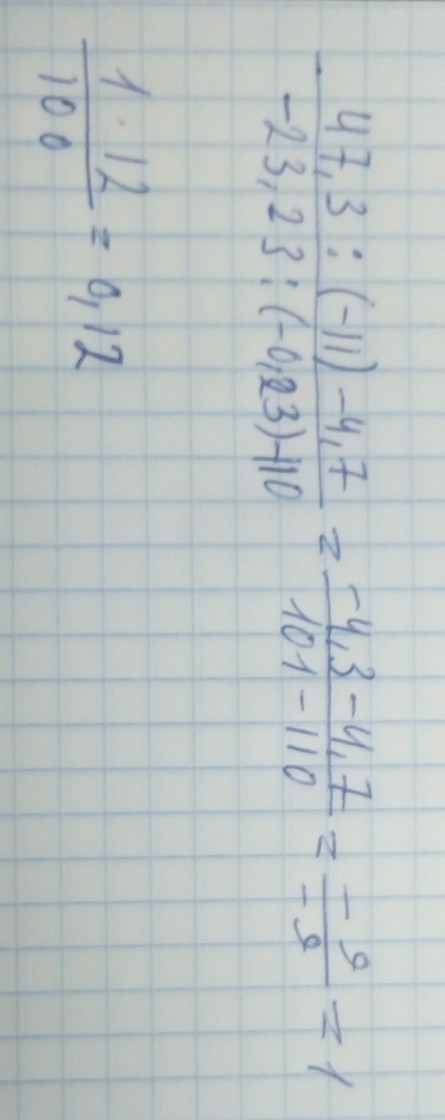 47,3 : (-11) - 4,7 = -4,3 - 4,7 = -9 = 1
-23,23 : (-0,23) - 110 101 - 110 -9
1 · 12 = 0,12
100